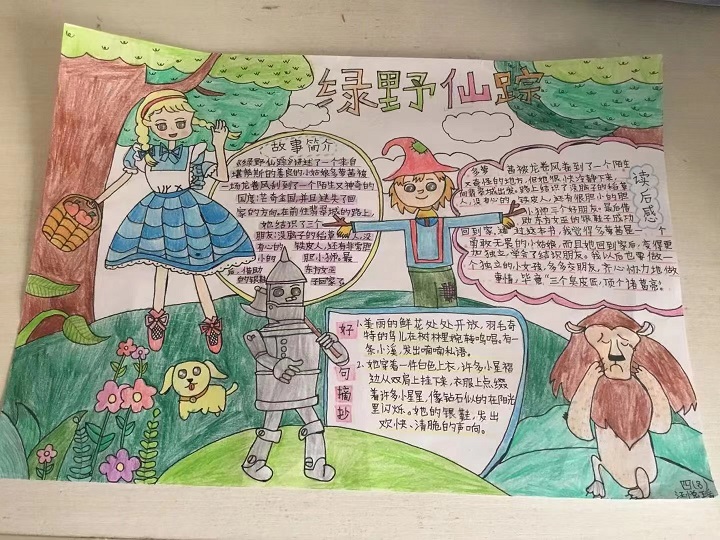 绿野仙踪
故事简介
《绿野仙踪》讲述了一个来自
堪萨斯的善良的小姑娘多萝茜被
一场龙卷风刮到了一个陌生又神奇的
国度:芒奇金国,并且迷失了回
家的方向。在前往翡翠城的路上,
她结识了三个
朋友:没脑子的稻草人,没
有心的铁皮人,还有非常胆
小的胆小狮,最
后,借助东方女巫
的银鞋回家了
多萝茜被龙卷风卷到了一个陌生
又奇怪的地方,但她很快冷静下来,
向翡翠城出发。路上结识了没脑子的稻草
人,没有心的铁皮人,还有很胆小的胆
小狮三个好朋友。最后借
助东方女巫的银鞋子成功
回到家,通过这本书,我觉得多萝茜是一个
勇敢无畏的小姑娘,而且她回到家后,变得更
加独立,学会了结识朋友。我以后也要做一
个独立的小女孩,多多交朋友,齐心协力地做
事情,毕竟“三个臭皮匠,顶个诸葛亮”。
读后感
好句摘抄
1.美丽的鲜花处处开放,羽毛奇
特的鸟儿在树林里婉转鸣唱。有一
条小溪,发出喃喃私语。
2.她穿着一件白色上衣,许多小星褶
边从双肩上挂下来,衣服上点缀
着许多小星星,像钻石似的在阳光
里闪烁。她的银鞋,发出
欢快、清脆的声响。
四(3)